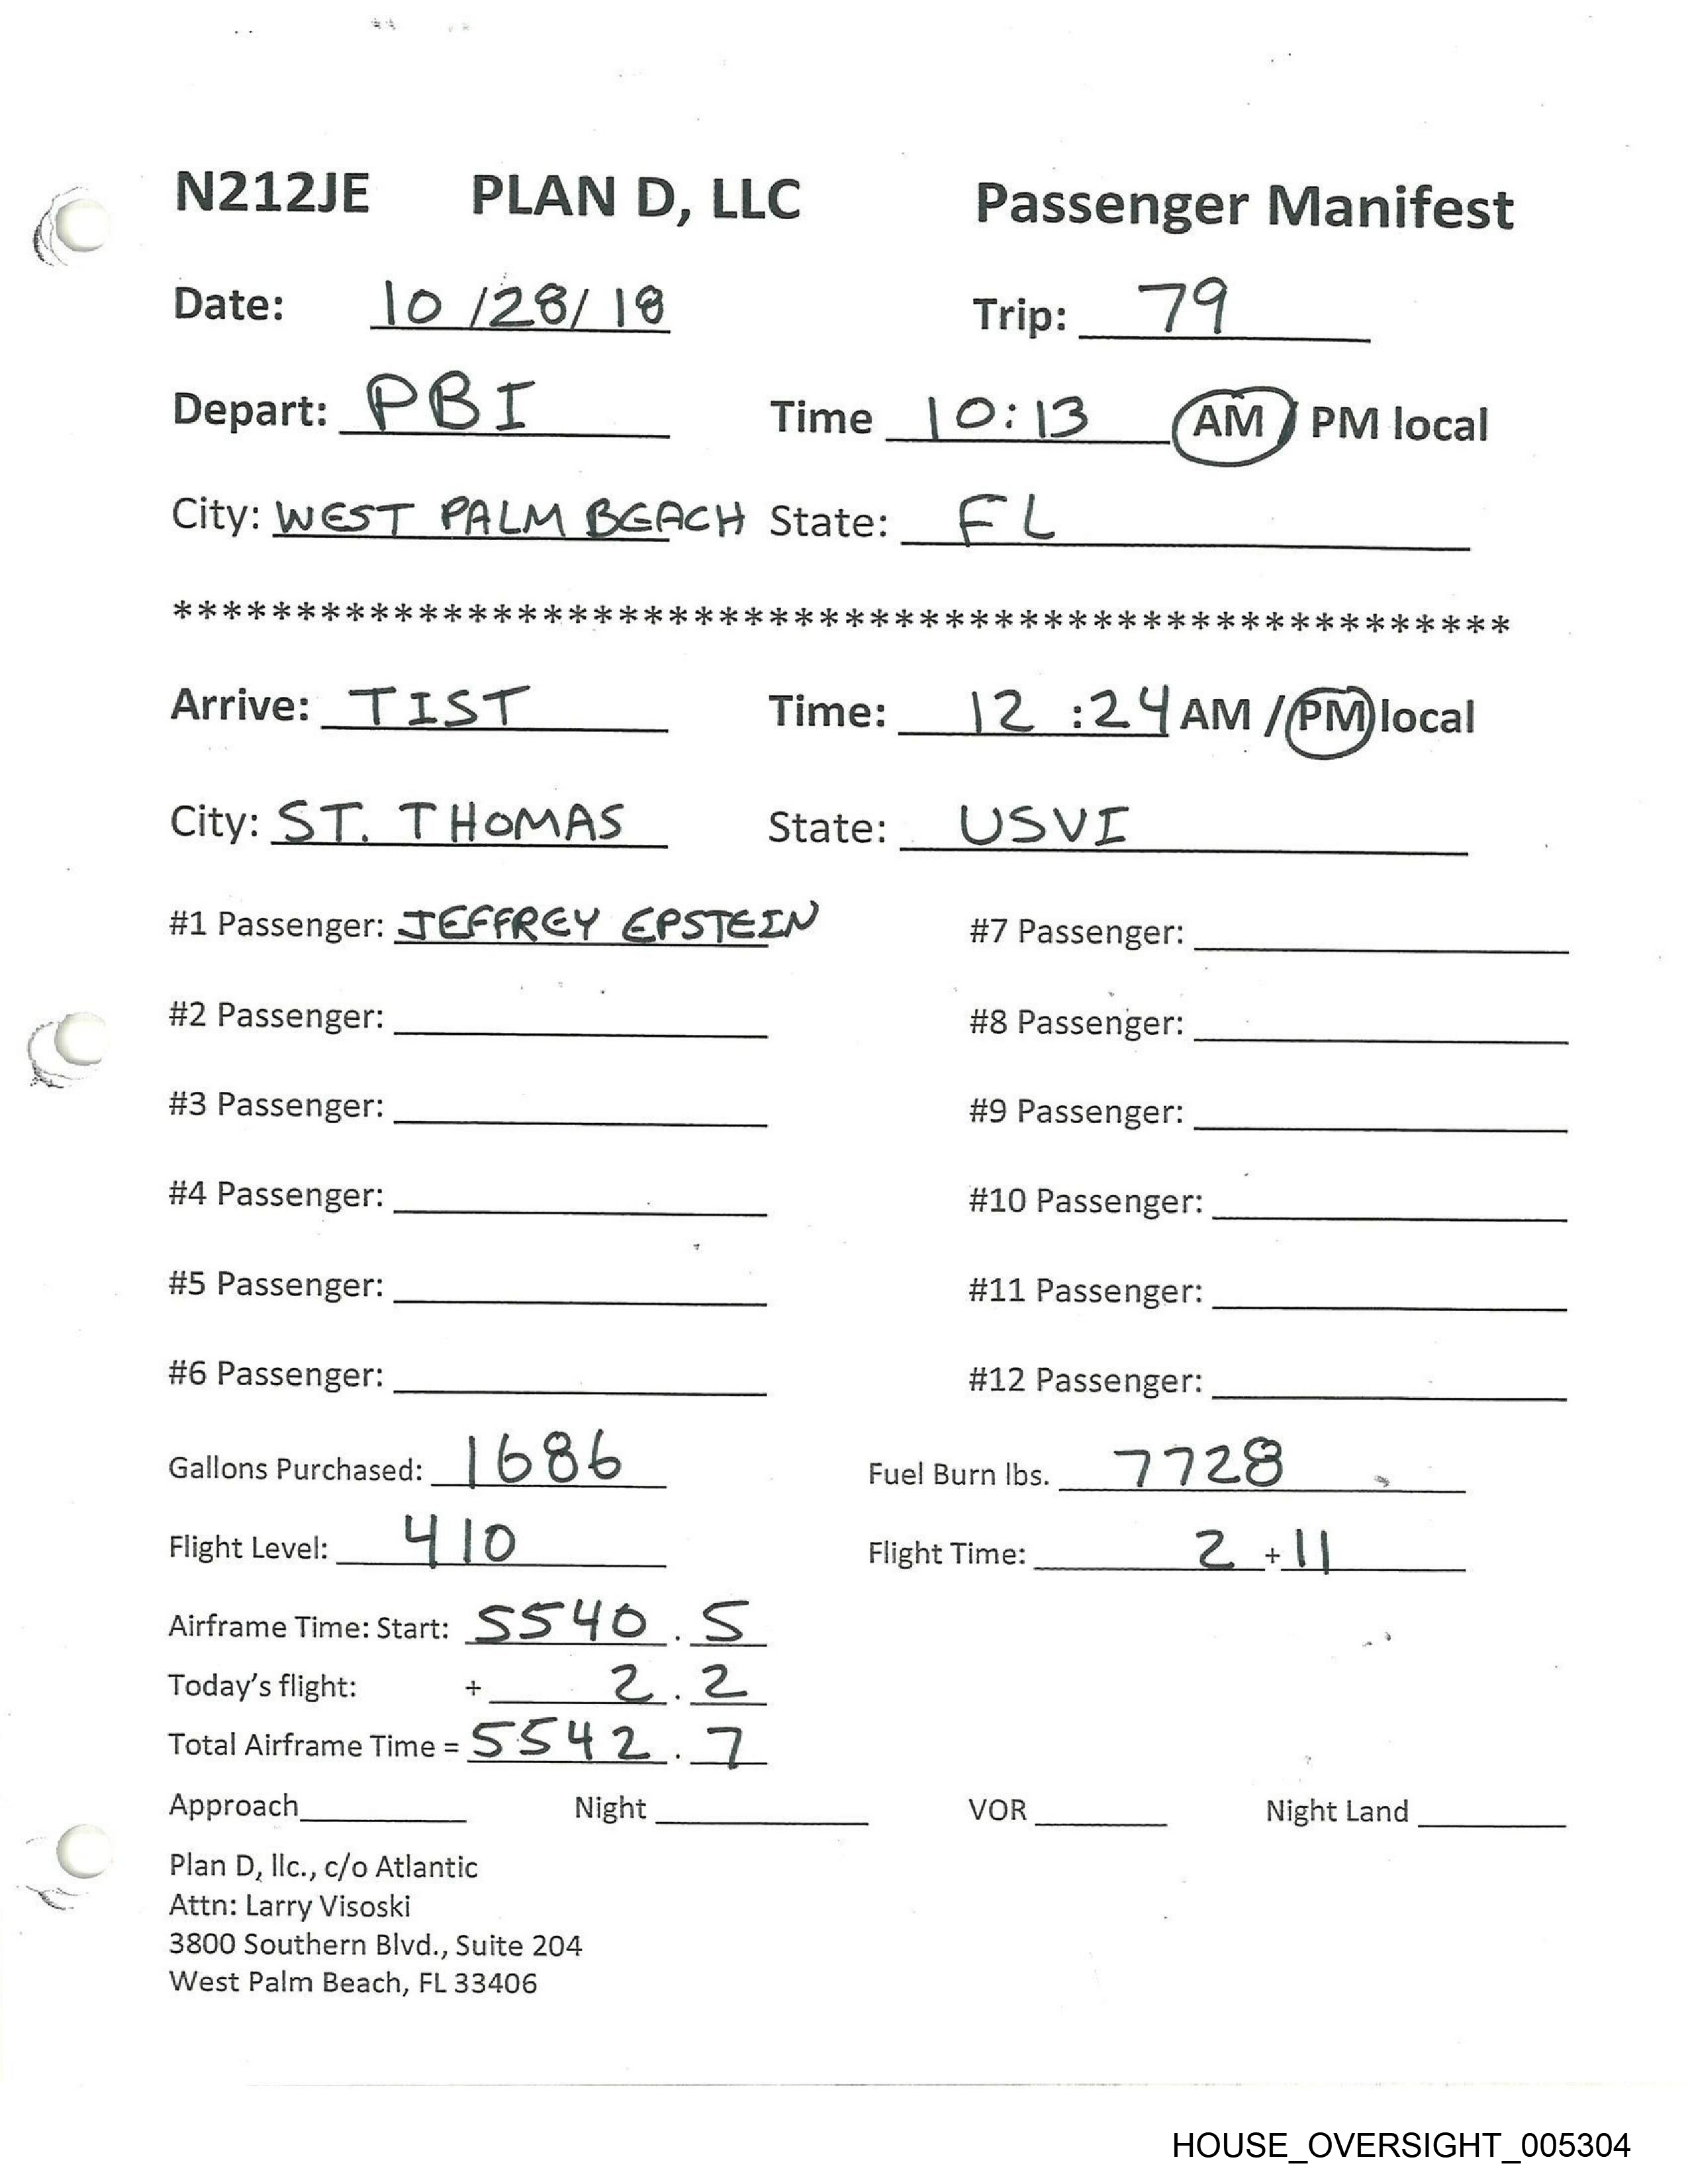 N212JE PLAN D, LLC Passenger Manifest
Date: 10/28/18 Trip: 79
Depart: PBI Time 10:13 AM / PM local
City: WEST PALM BEACH State: FL
******************************************************
Arrive: TIST Time: 12:24 AM / PM local
City: ST. THOMAS State: USVI
#1 Passenger: JEFFREY EPSTEIN #7 Passenger:
#2 Passenger: #8 Passenger:
#3 Passenger: #9 Passenger:
#4 Passenger: #10 Passenger:
#5 Passenger: #11 Passenger:
#6 Passenger: #12 Passenger:
Gallons Purchased: 1686 Fuel Burn lbs. 7728
Flight Level: 410 Flight Time: 2 + 11
Airframe Time: Start: 5540.5
Today's flight: + 2.2
Total Airframe Time = 5542.7
Approach Night VOR Night Land
Plan D, llc., c/o Atlantic
Attn: Larry Visoski
3800 Southern Blvd., Suite 204
West Palm Beach, FL 33406
HOUSE_OVERSIGHT_005304